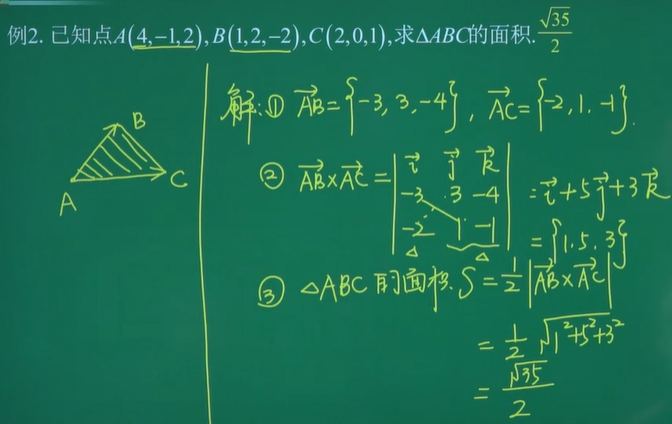 例2. 已知点A(4,-1,2),B(1,2,-2),C(2,0,1),求ΔABC的面积. √35/2
解:① AB={-3,3,-4}, AC={-2,1,-1}.
B
A
C
② AB×AC=
i j k
-3 3 -4
-2 1 -1
=i+5j+3k
={1,5,3}
③ △ABC的面积.S=1/2|AB×AC|
=1/2√1²+5²+3²
=√35/2